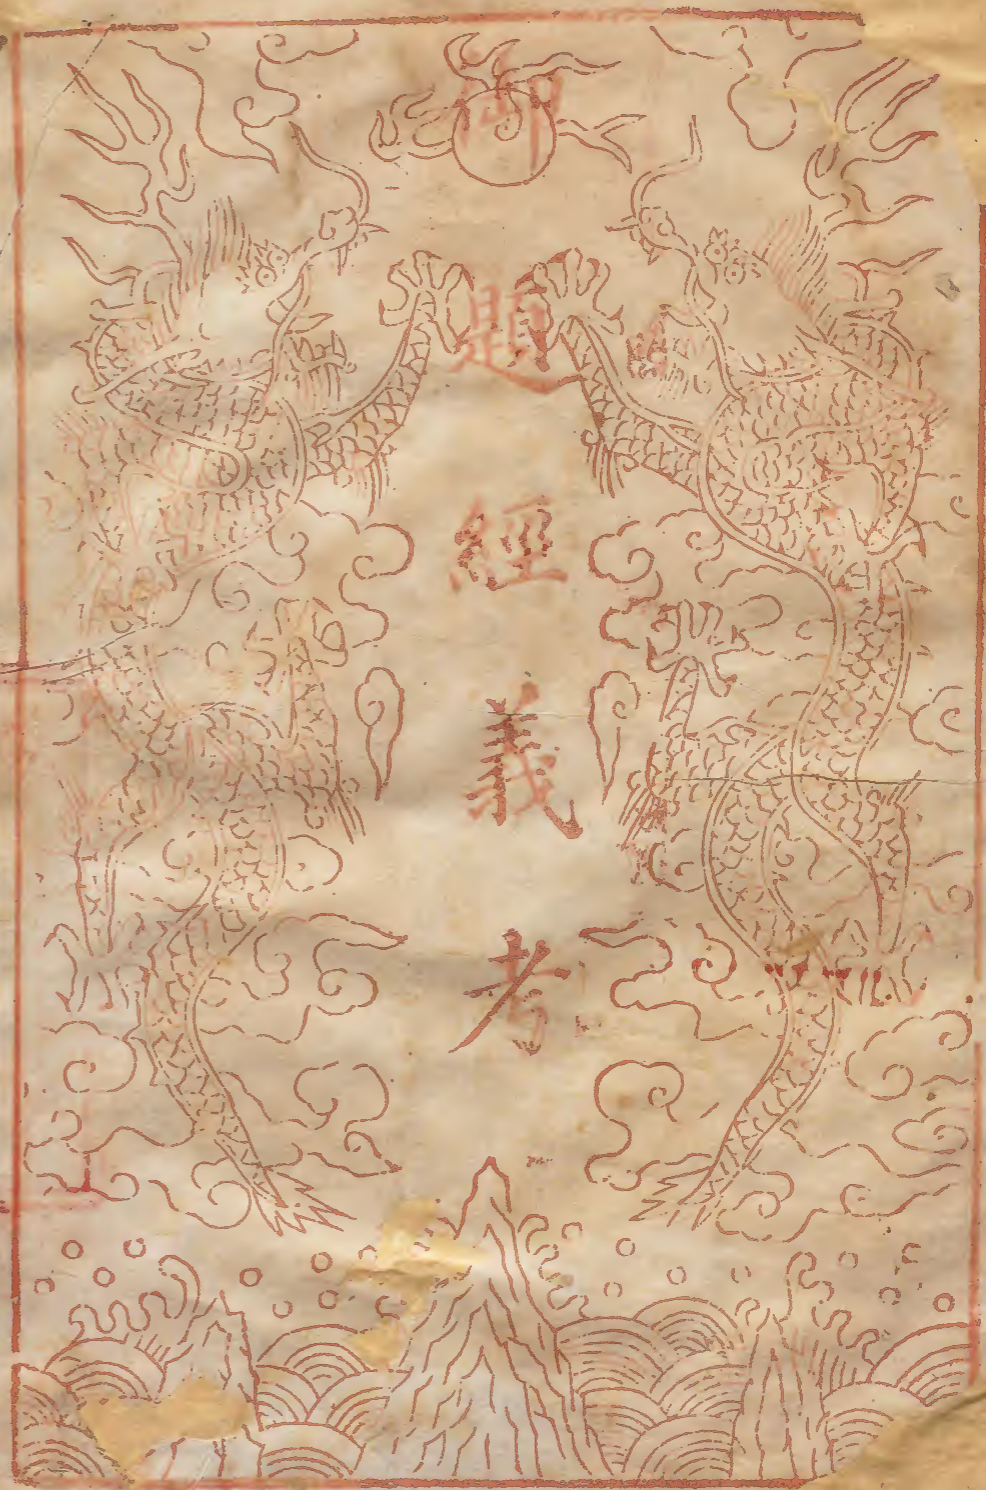 御題經義考